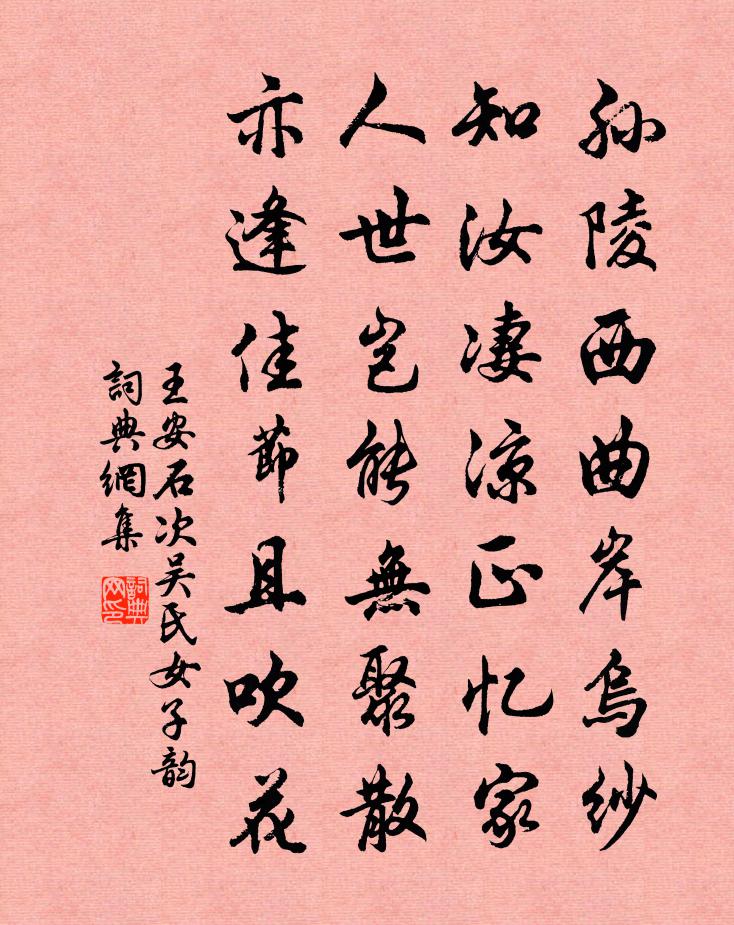 孙陵西曲岸乌纱
知汝凄凉正忆家
人世岂能無聚散
亦逢佳節且吹花
王安石次吴氏女子韵
詞典網集
詞典網印